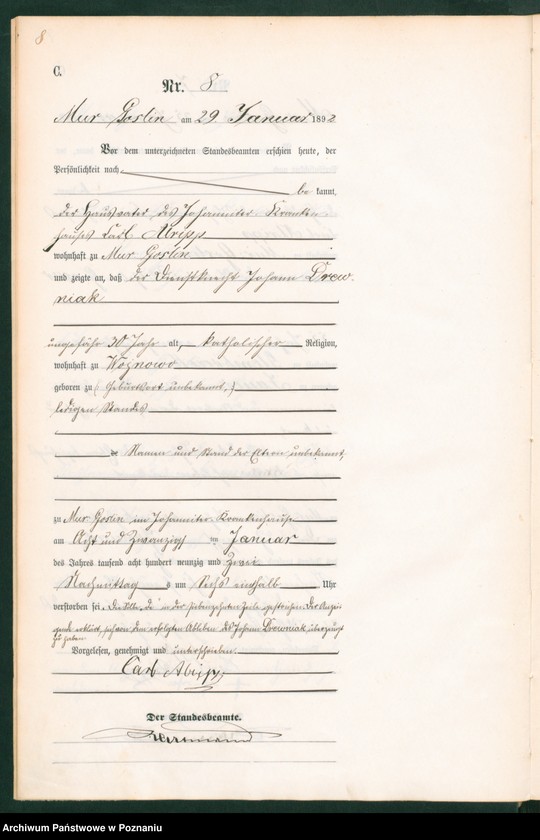 8
C.
Nr. 8
Mur Goslin am 29 Januar 1892
Vor dem unterzeichneten Standesbeamten erschien heute, der
Persönlichkeit nach
be kannt,
der Hausvater des Johanniter Kranken
hauses Carl
wohnhaft zu Mur Goslin
und zeigte an, daß der Dienstknecht Johann Drew
niak
ungefähr 30 Jahr alt, katholischer Religion,
wohnhaft zu Wojnowo
geboren zu (Geburtsort unbekannt,)
ledigen Standes
Namen und Stand der Eltern unbekannt,
zu Mur Goslin im Johanniter Krankenhause
am Acht und Zwanzigsten Januar
des Jahres tausend acht hundert neunzig und Zwei
Nachmittag s um Sechs einhalb Uhr
verstorben sei. in der siebenzehnten Zeile gestrichen. Der Anzei
gende erklärt, sich von dem erfolgten Ableben des Johann Drewniak, überzeugt
zu haben.
Vorgelesen, genehmigt und unterschrieben.
Carl
Der Standesbeamte.
Archiwum Państwowe w Poznaniu